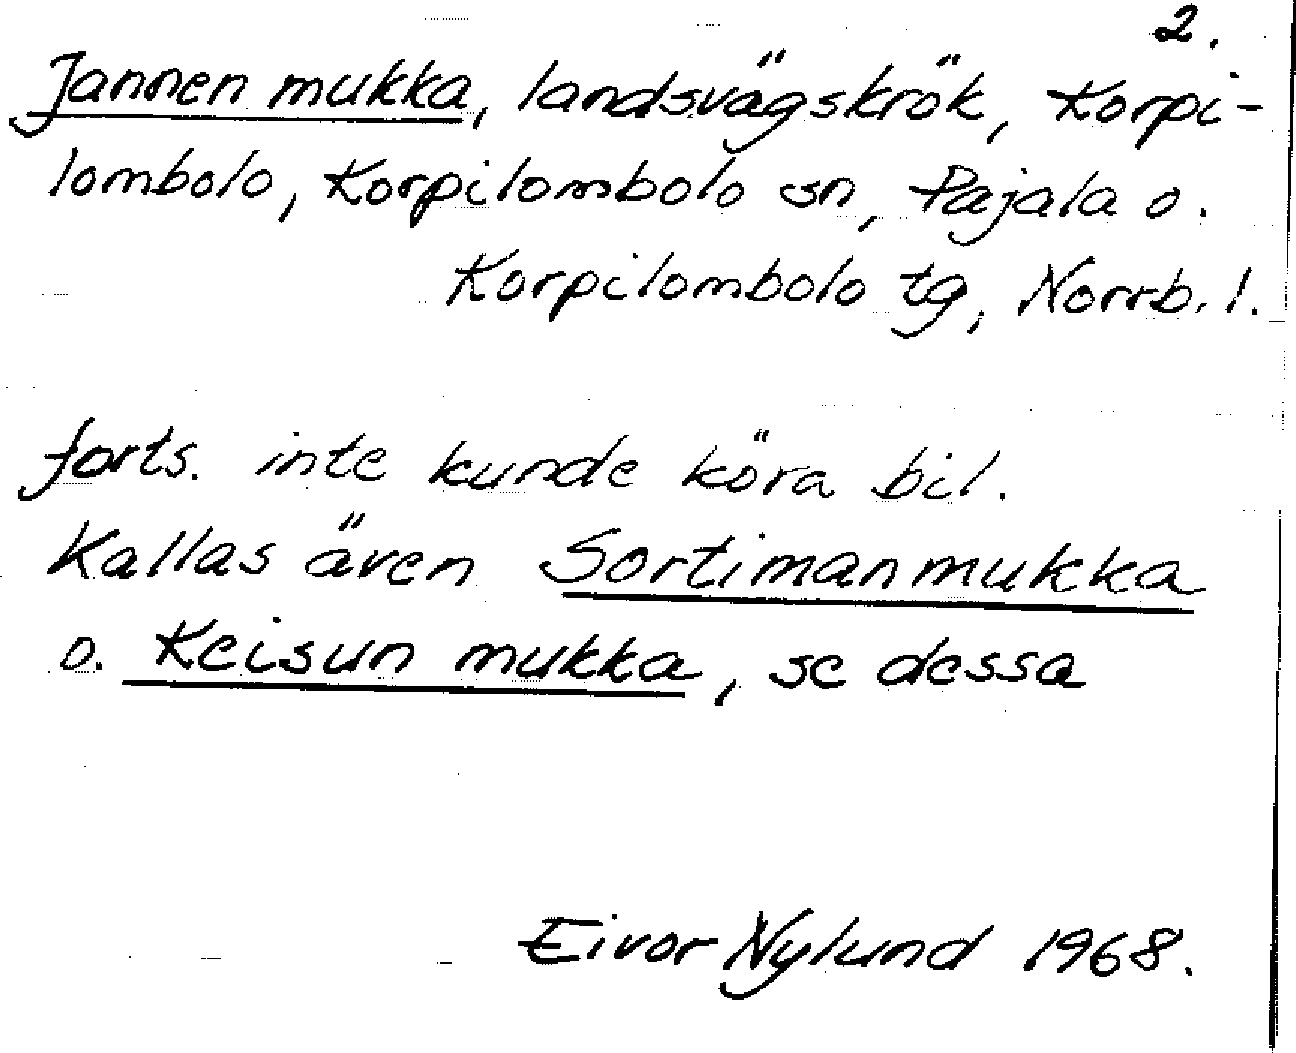 2.
Jannen mukka, landsvägskrök, Korpi-
lombolo, Korpilombolo sn, Pajala o.
Korpilombolo tg, Norrb. l.
forts. inte kunde köra bil.
Kallas även Sortimanmukka
o. Keisun mukka, se dessa
Eivor Nylund 1968.